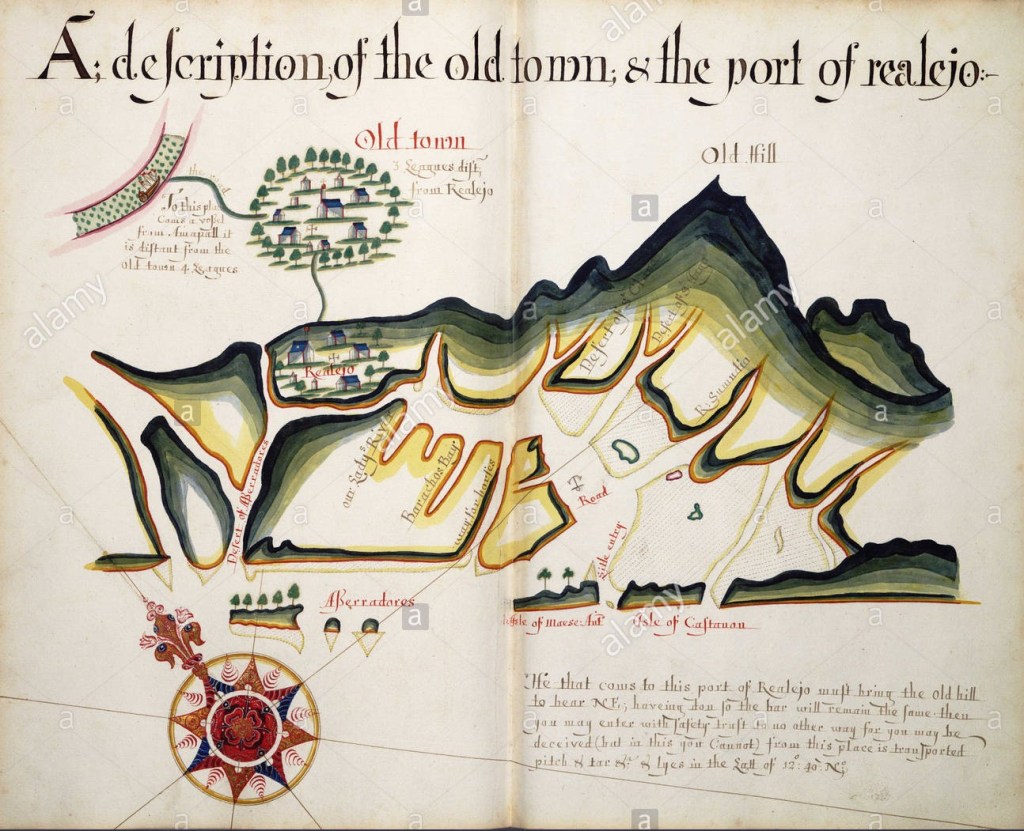 A; description; of the old town; & the port of realejo:-
Old town
3 Leagues dist,
from Realejo
Old Hill
the road
To this place
Coms a vessel
from Amapall it
is distant from the
Old town 4 Leagues
Realejo
Desert of
Desert of
R: Summatio
our Ladys River
Barachos Bay
way for barkes
Desert of Aberradores
Road
Side entry
Aberradores
Isle of
Isle of Castanon
He that coms to this port of Realejo must bring the old hill
to bear NE; haveing don so the bar will remain the same then
you may enter with safety trust to no other way for you may be
deceived (but in this you Cannot) from this place is transported
pitch & tar &c & lyes in the Latt of 12°: 40 No
alamy
a